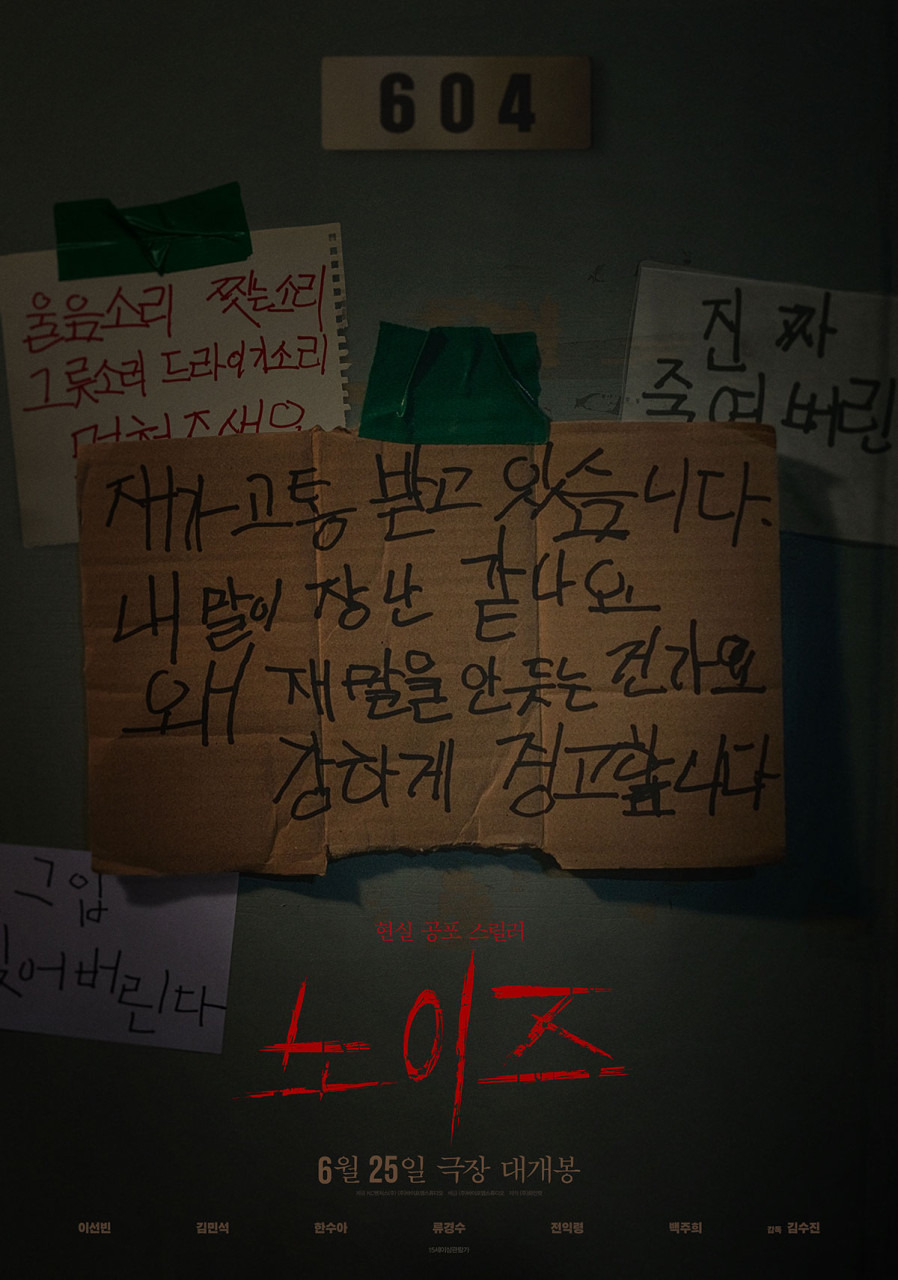 604
울음소리 찢는소리
그릇소리 드라이기소리
멈춰주세요
진짜
죽여버린
재가 고통 받고 있습니다.
내 말이 장난 같나요
왜 재 말을 안 듣는 건가요
강하게 경고합니다
그 입
찢어버린다
현실 공포 스릴러
노이즈
6월 25일 극장 대개봉
이선빈 김민석 한수아 류경수 전익령 백주희 감독 김수진
15세이상관람가